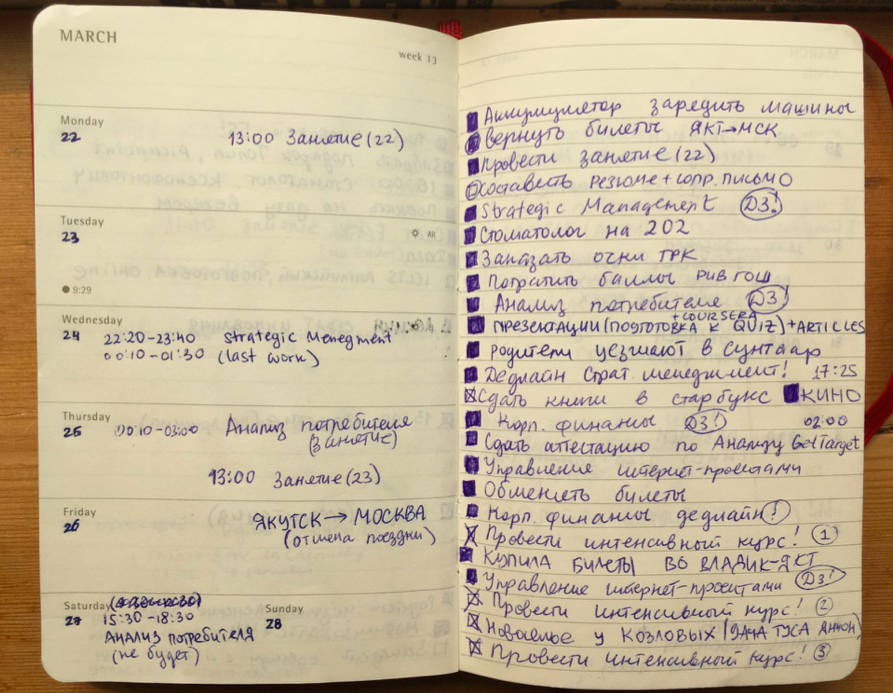 MARCH
week 13
Monday
22
13:00 Занятие (22)
Tuesday
23
9:29
Wednesday
24
22:20-23:40 Strategic Menegment
00:10-01:30 (last work)
Thursday
25
00:10-03:00 Анализ потребителя
(занятие)
13:00 Занятие (23)
Friday
26
ЯКУТСК → МОСКВА
(отмена поездки)
Saturday
27
15:30-18:30
АНАЛИЗ ПОТРЕБИТЕЛЯ
(не будет)
Sunday
28
Аккумулятор зарядить машины
Вернуть билеты ЯКТ→МСК
Провести занятие (22)
Составить резюме + сопр. письмо
Strategic Management ДЗ!
Стоматолог на 202
Заказать очки ТРК
Потратить баллы РИВ ГОШ
Анализ потребителя ДЗ!
+COURSERA
ПРЕЗЕНТАЦИИ (ПОДГОТОВКА К QUIZ) + ARTICLES
Родители уезжают в Сунтаар
Дедлайн Страт. менеджмент! 17:25
Сдать книги в старбукс КИНО
Корп. финансы ДЗ! 02:00
Сдать аттестацию по Анализу GetTarget
Управление интернет-проектами
Обменять билеты
Корп. финансы дедлайн!
Провести интенсивный курс! 1
Купила БИЛЕТЫ ВО ВЛАДИК-ЯКТ
Управление интернет-проектами ДЗ!
Провести интенсивный курс! 2
Новоселье у КОЗЛОВЫХ (ДАЧА ТУСА
Провести интенсивный курс! 3